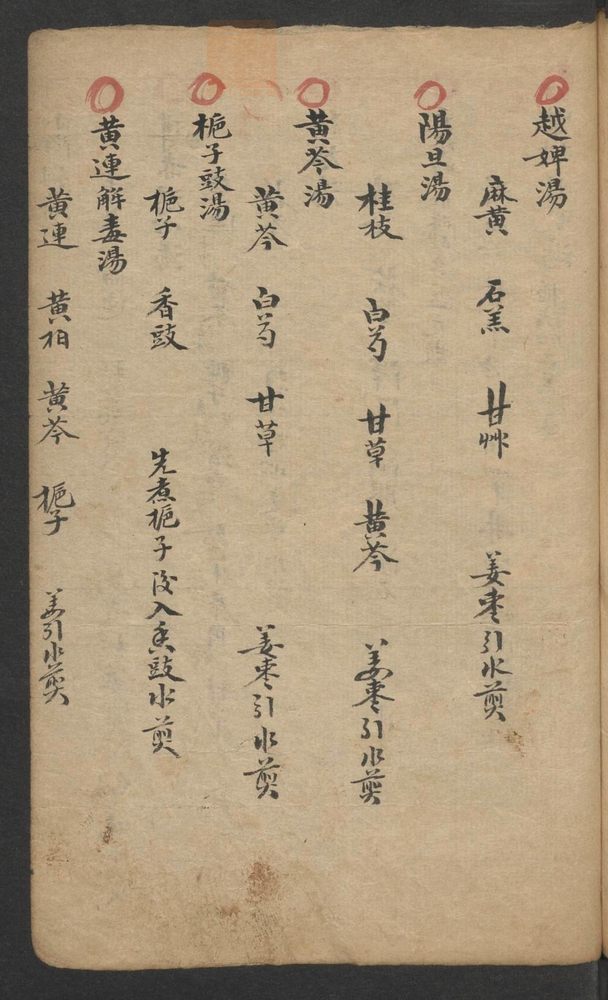 越婢湯
麻黄 石羔 甘艸 姜枣引水煎
陽旦湯
桂枝 白芍 甘草 黄芩 姜枣引水煎
黄芩湯
黄芩 白芍 甘草 姜枣引水煎
栀子豉湯
栀子 香豉 先煮栀子後入香豉水煎
黄連解毒湯
黄連 黄栢 黄芩 栀子 姜引水煎